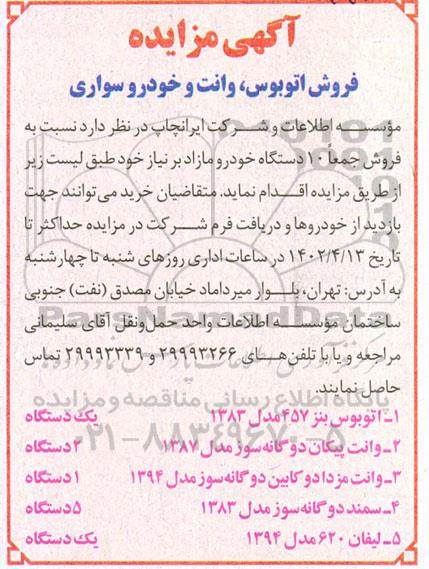 آگهی مزایده
فروش اتوبوس، وانت و خودرو سواری
مؤسسه اطلاعات و شرکت ایرانچاپ در نظر دارد نسبت به
فروش جمعاً ۱۰ دستگاه خودرو مازاد بر نیاز خود طبق لیست زیر
از طریق مزایده اقدام نماید. متقاضیان خرید می‌توانند جهت
بازدید از خودروها و دریافت فرم شرکت در مزایده حداکثر تا
تاریخ ۱۴۰۲/۴/۱۳ در ساعات اداری روزهای شنبه تا چهارشنبه
به آدرس: تهران، بلوار میرداماد خیابان مصدق (نفت) جنوبی
ساختمان مؤسسه اطلاعات واحد حمل‌ونقل آقای سلیمانی
مراجعه و یا با تلفن‌های ۲۹۹۹۳۲۶۶ و ۲۹۹۹۳۳۳۹ تماس
حاصل نمایند.
۱ـ اتوبوس بنز ۴۵۷ مدل ۱۳۸۳ یک دستگاه
۲ـ وانت پیکان دوگانه سوز مدل ۱۳۸۷ ۲ دستگاه
۳ـ وانت مزدا دو کابین دوگانه سوز مدل ۱۳۹۴ ۱ دستگاه
۴ـ سمند دوگانه سوز مدل ۱۳۸۳ ۵ دستگاه
۵ـ لیفان ۶۲۰ مدل ۱۳۹۴ یک دستگاه
ParsNamadData
پایگاه اطلاع رسانی مناقصه و مزایده
۰۲۱-۸۸۳۴۹۶۷۰-۵